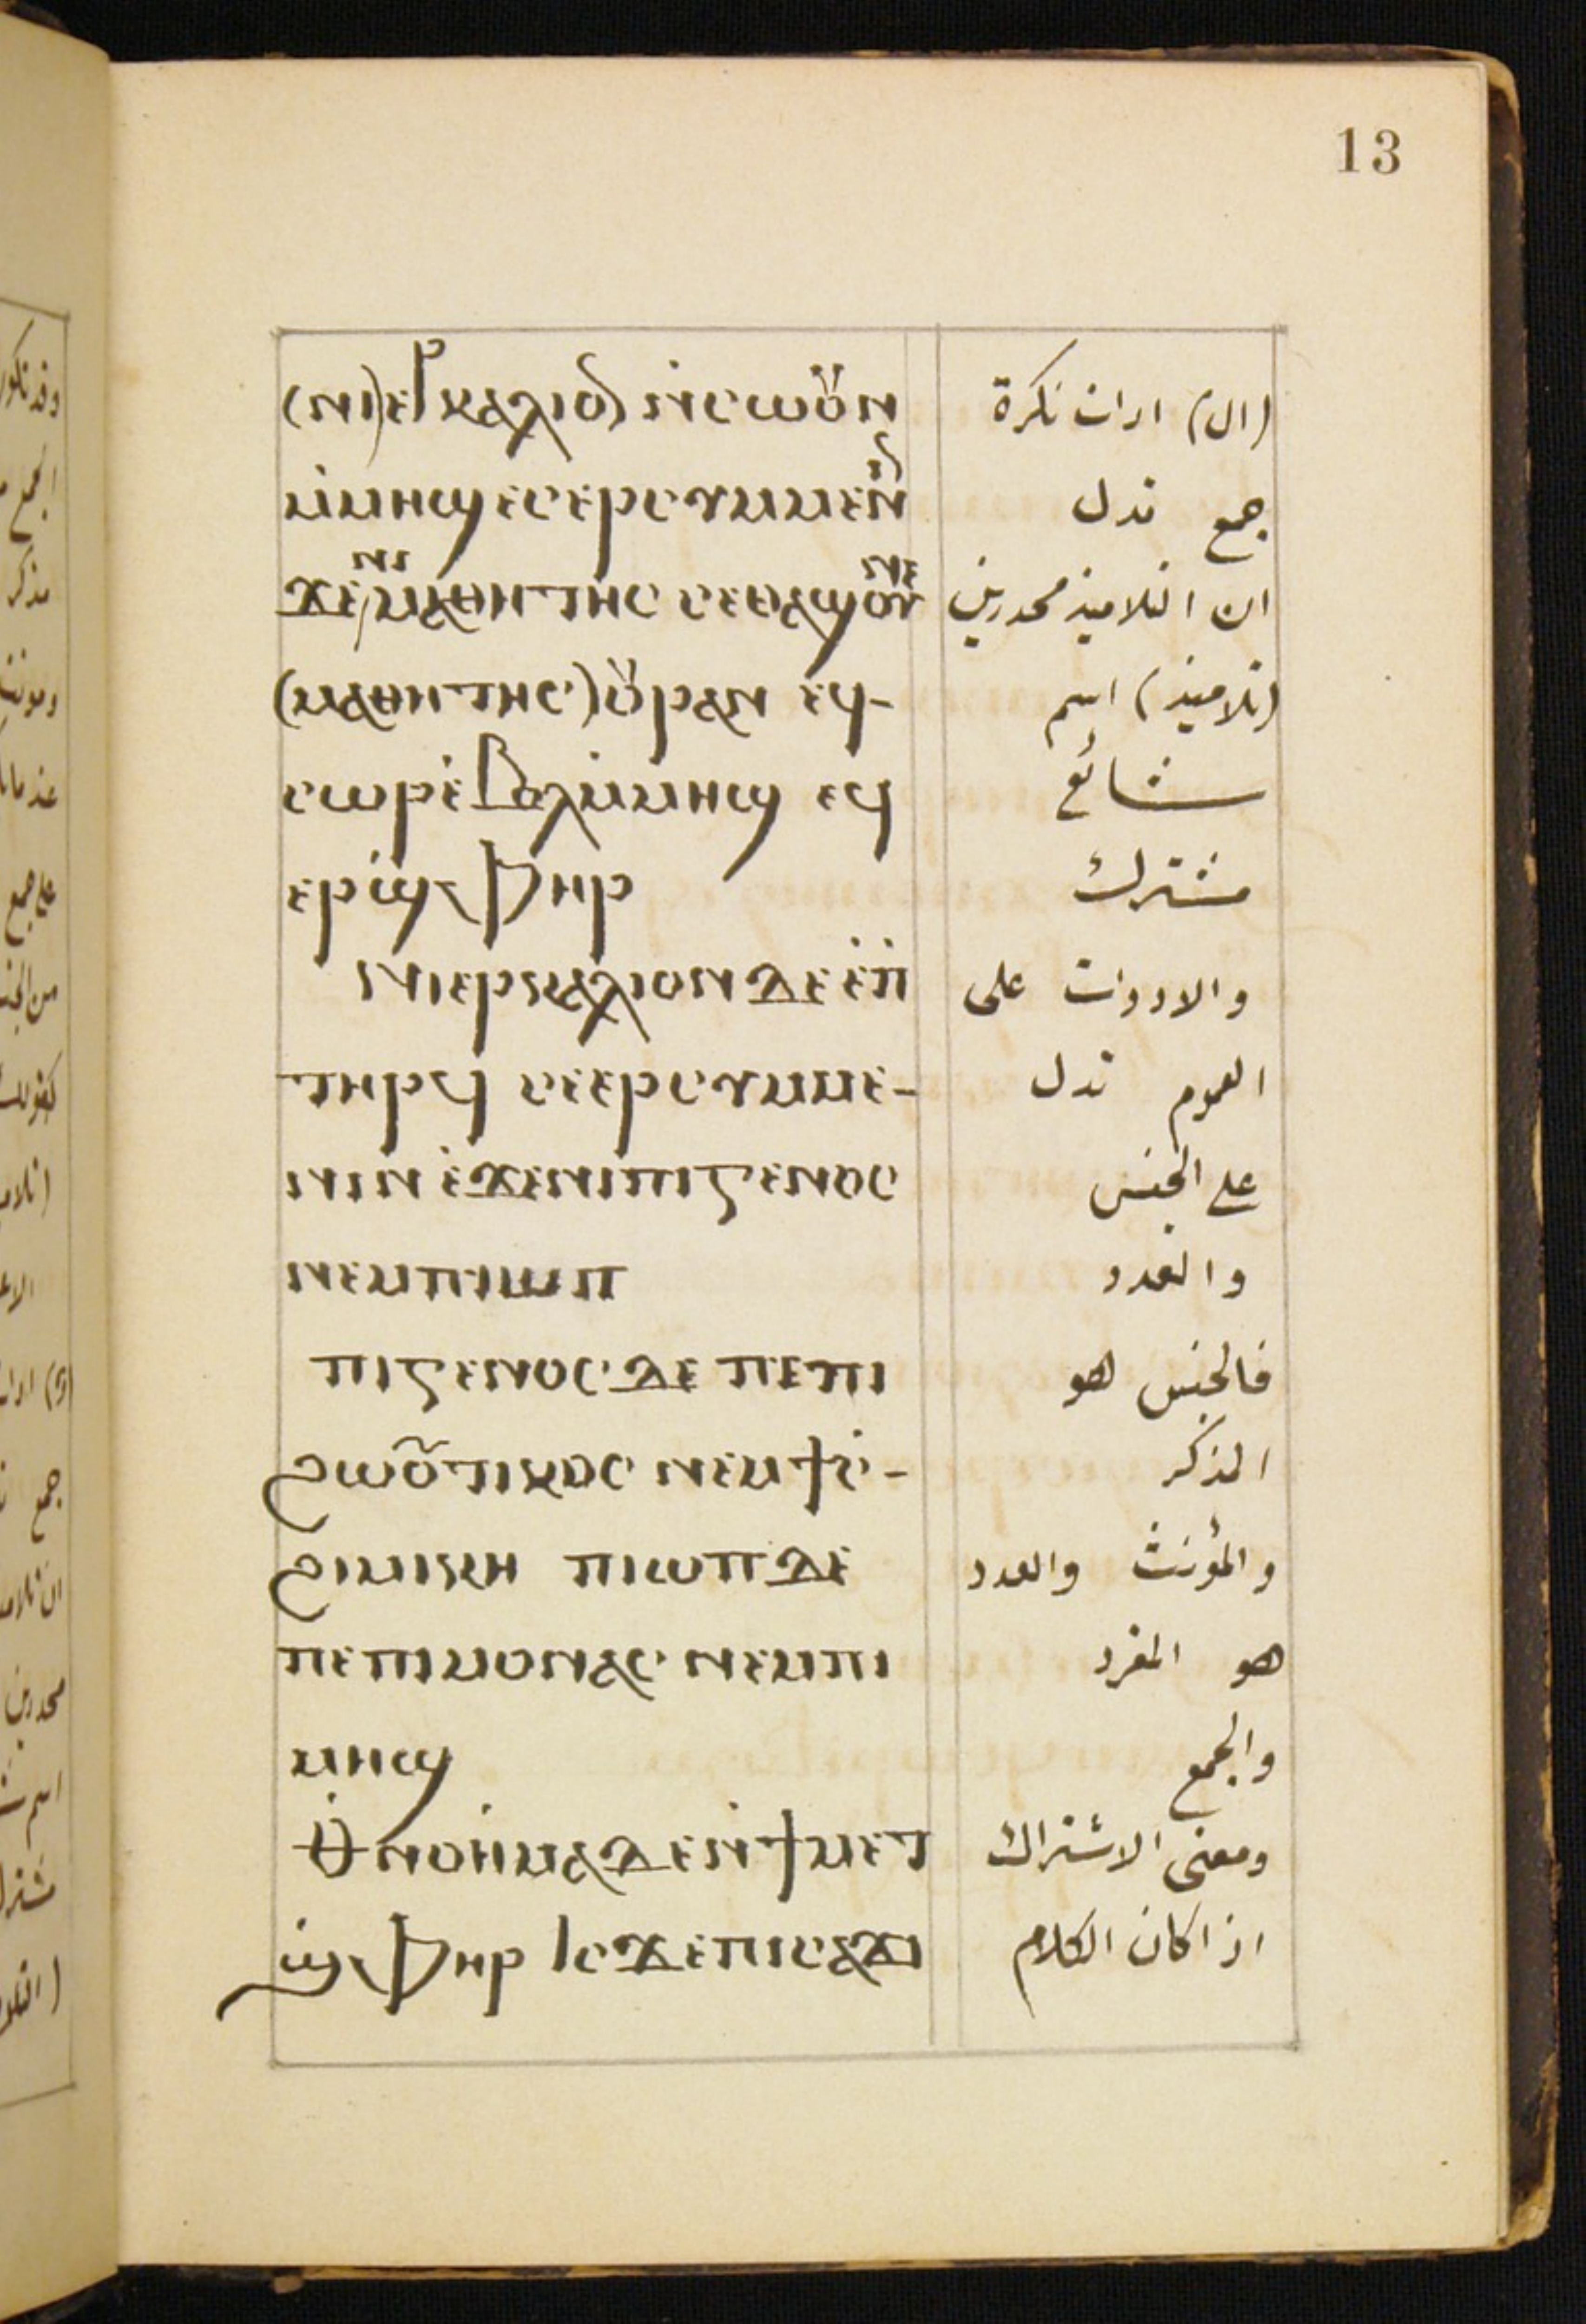 13
(ⲛⲓ) ⲉⲣⲕⲁⲗⲓⲟⲛ ⲛ̀ⲥⲱⲟⲩⲛ (ال) ادات نكرة
ⲙ̀ⲙⲏϣ ⲉⲥⲉⲣⲥⲩⲙⲙⲉⲛⲓⲛ جمع تدل
ϫⲉ ⲛⲓⲙⲁⲑⲏⲧⲏⲥ ⲥⲉⲑⲁϣ ان التلاميذ محدودين
(ⲙⲁⲑⲏⲧⲏⲥ) ⲟⲩⲣⲁⲛ ⲉϥ- (تلاميذ) اسم
ⲥⲱⲣ ⲉ̀ⲃⲟⲗ ⲙ̀ⲙⲏϣ ⲉϥ شائع
ⲉⲣⲓ̀ϣⲫⲏⲣ مشترك
ⲛⲓⲉⲣⲕⲁⲗⲓⲟⲛ ⲇⲉ ⲉ̀ⲡ̀ والادوات على
ⲧⲏⲣϥ ⲥⲉⲉⲣⲥⲩⲙⲙⲉ- العموم تدل
ⲛⲓⲛ ⲉ̀ϫⲉⲛ ⲡⲓⲅⲉⲛⲟⲥ على الجنس
ⲛⲉⲙ ⲡⲓⲱⲡ والعدد
ⲡⲓⲅⲉⲛⲟⲥ ⲇⲉ ⲡⲉ ⲡⲓ فالجنس هو
ϩⲱⲟⲩⲧⲓⲕⲟⲥ ⲛⲉⲙ ϯⲥ̀- المذكر
ϩⲓⲙⲓⲕⲏ ⲡⲓⲱⲡ ⲇⲉ والمؤنث والعدد
ⲡⲉ ⲡⲓⲙⲟⲛⲁⲥ ⲛⲉⲙ ⲡⲓ هو المفرد
ⲙⲏϣ والجمع
ⲑ̀ⲛⲟⲏ̀ⲙⲁ ⲇⲉ ⲛ̀ϯⲙⲉⲧ ومعنى الاشتراك
ϣ̀ⲫⲏⲣ ⲓⲥϫⲉ ⲡⲓⲥⲁϫⲓ اذا كان الكلام